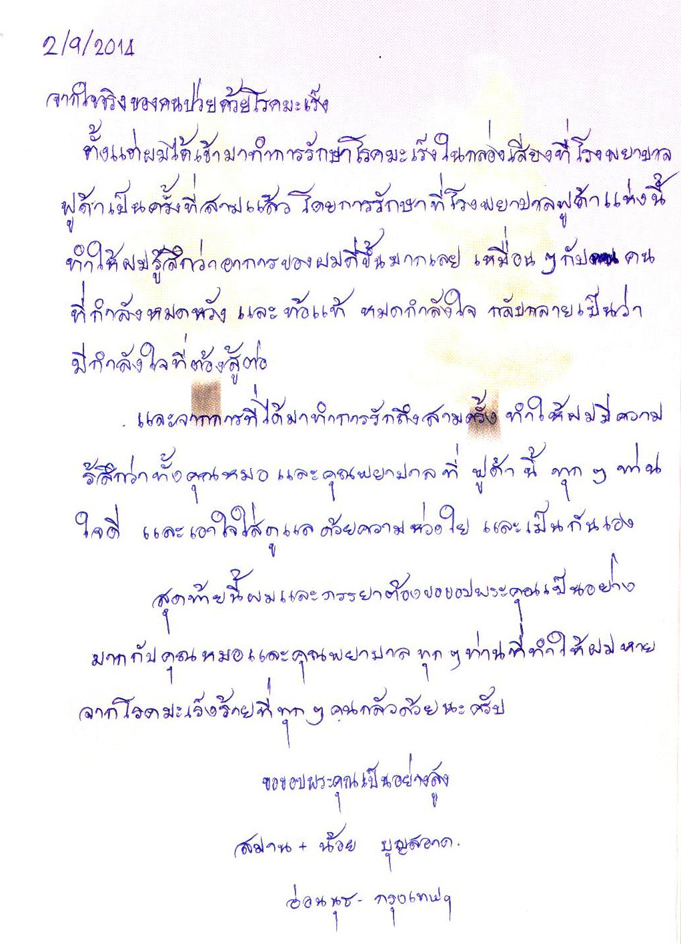 2/9/2014
จากใจจริงของคนป่วยด้วยโรคมะเร็ง
ตั้งแต่ผมได้เข้ามาทำการรักษาโรคมะเร็งในกล่องเสียงที่โรงพยาบาล
ฟูด้าเป็นครั้งที่สามแล้ว โดยการรักษาที่โรงพยาบาลฟูด้าแห่งนี้
ทำให้ผมรู้สึกว่าอาการของผมดีขึ้นมากเลย เหมือนๆกับ คน
ที่กำลังหมดหวัง และท้อแท้ หมดกำลังใจ กลับกลายเป็นว่า
มีกำลังใจที่ต้องสู้ต่อ
และจากการที่ได้มาทำการรักถึงสามครั้ง ทำให้ผมมีความ
รู้สึกว่าทั้งคุณหมอ และคุณพยาบาลที่ ฟูด้า นี้ ทุกๆ ท่าน
ใจดี และเอาใจใส่ดูแลด้วยความห่วงใย และเป็นกันเอง
สุดท้ายนี้ผมและภรรยาต้องขอขอบพระคุณเป็นอย่าง
มากกับคุณหมอและคุณพยาบาลทุกๆท่านที่ทำให้ผมหาย
จากโรคมะเร็งร้ายที่ทุกๆคนกลัวด้วยนะครับ
ขอขอบพระคุณเป็นอย่างสูง
สมาน + น้อย บุญสอาด.
อ่อนนุช - กรุงเทพฯ